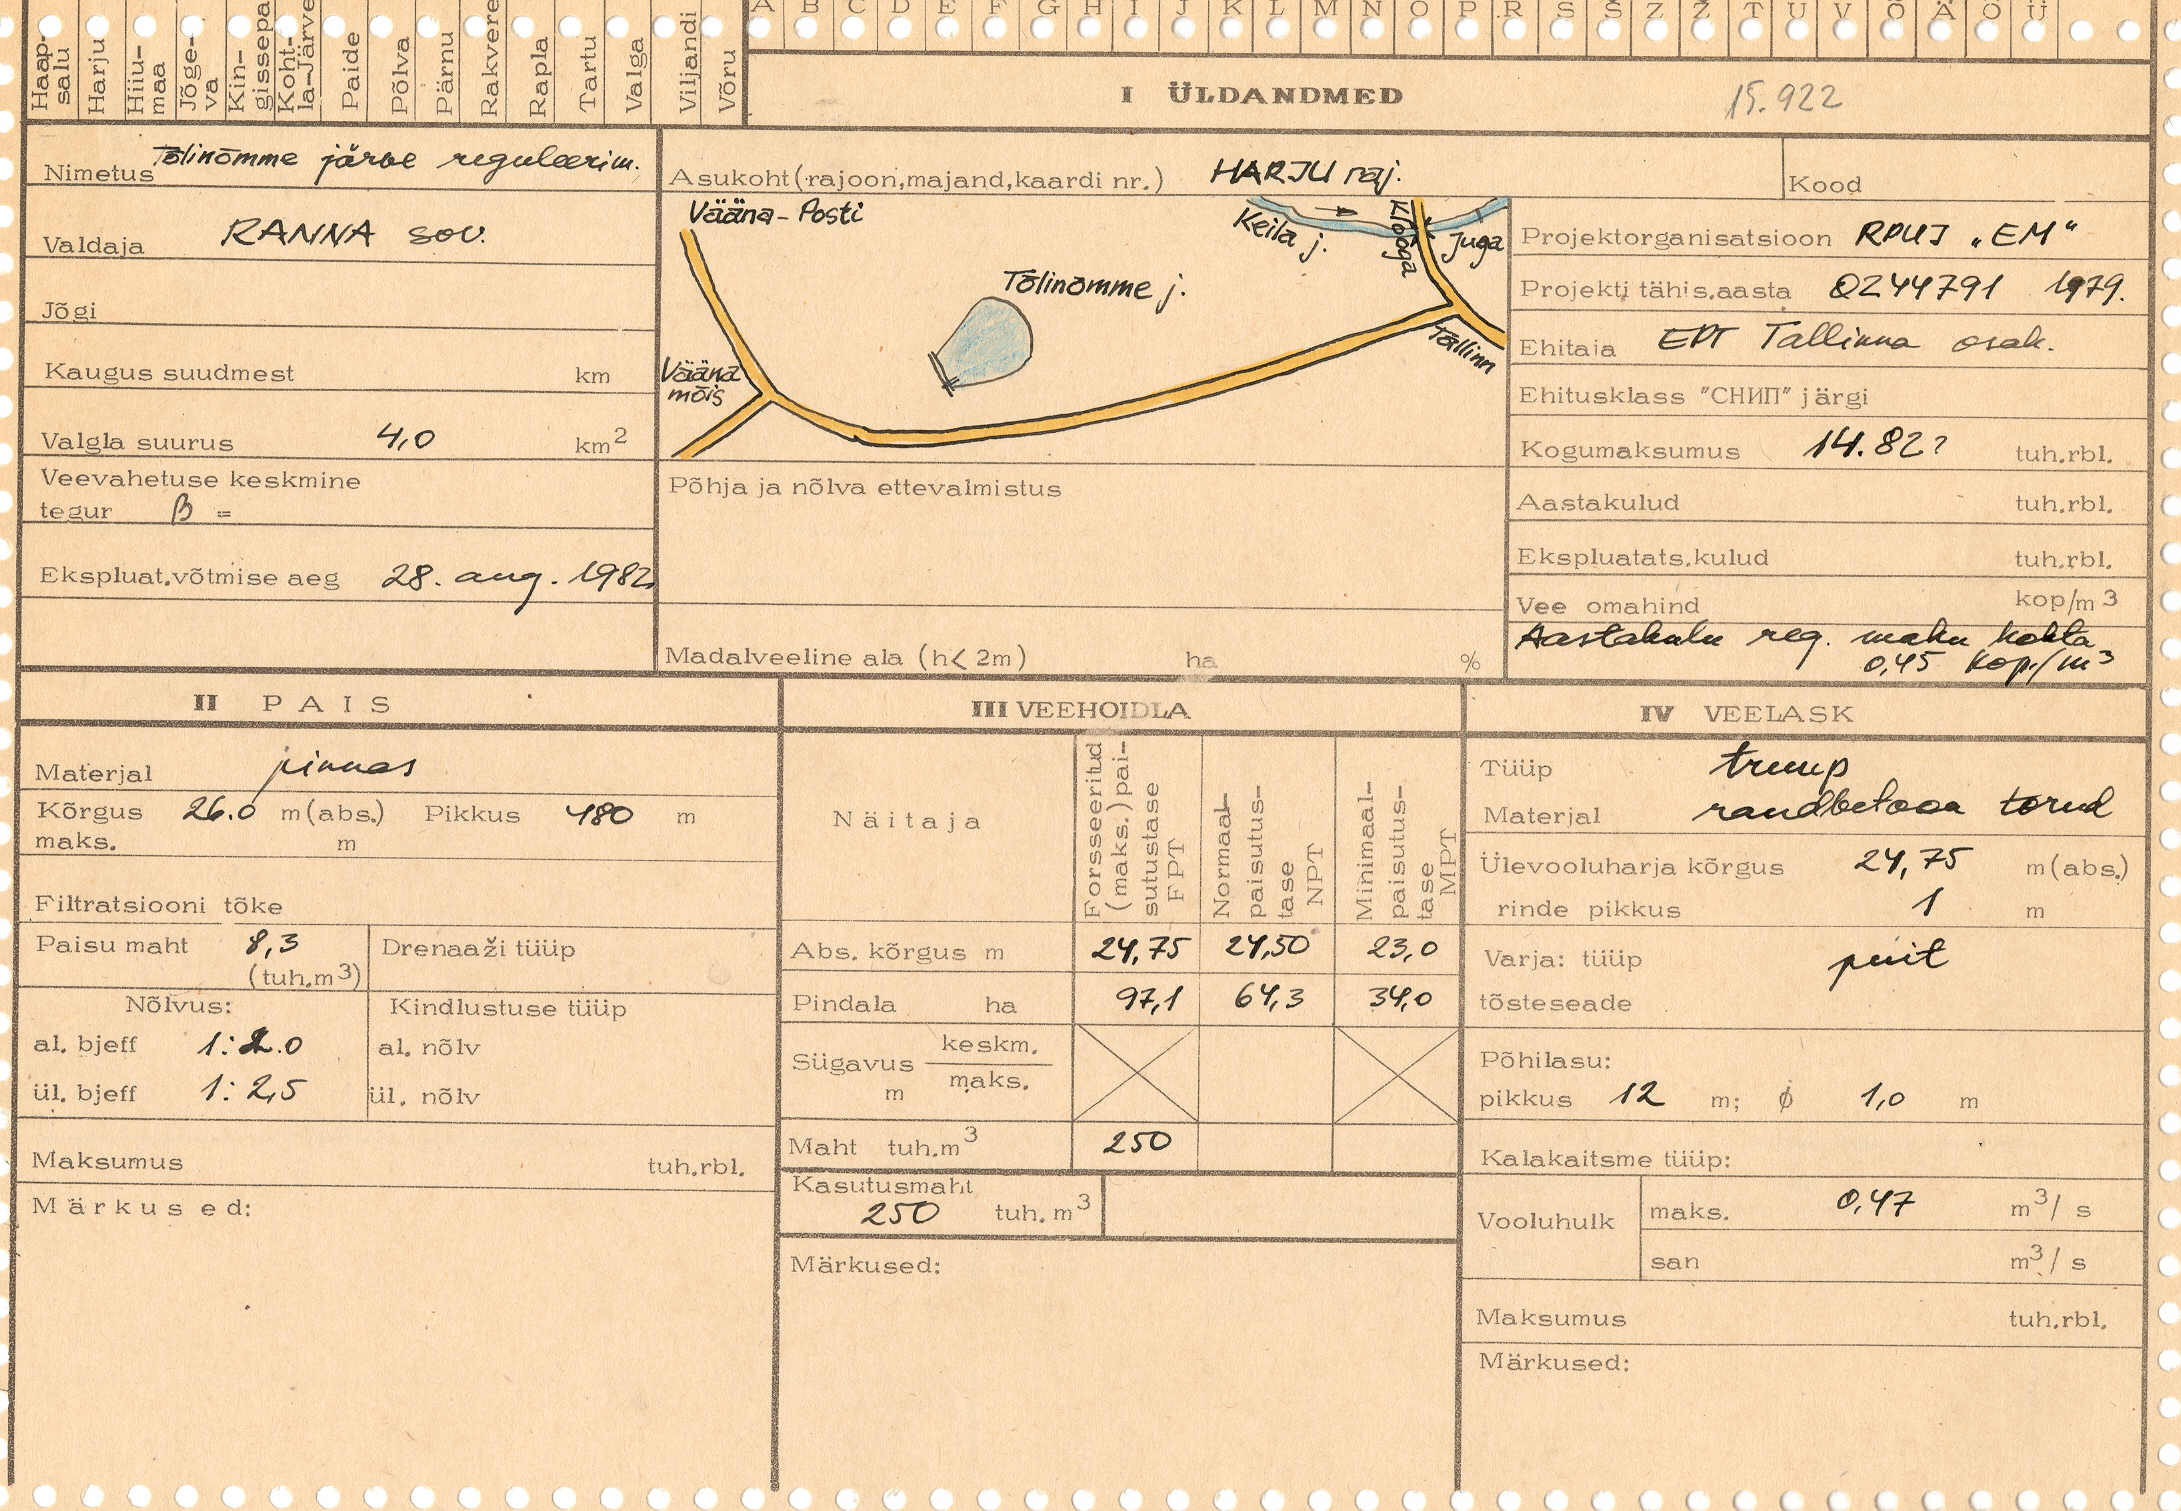 Haap-
salu
Harju
Hiiu-
maa
Jõge-
va
Kin-
gissepa
Koht-
la-Järve
Paide
Põlva
Pärnu
Rakvere
Rapla
Tartu
Valga
Viljandi
Võru
A B C D E F G H I J K L M N O P R S Š Z Ž T U V Õ Ä Ö Ü
I ÜLDANDMED
15.922
Nimetus Tõlinõmme järve reguleerim.
Valdaja RANNA sov.
Jõgi
Kaugus suudmest km
Valgla suurus 4,0 km2
Veevahetuse keskmine
tegur β =
Ekspluat.võtmise aeg 28. aug. 1982.
Asukoht (rajoon,majand,kaardi nr.) HARJU raj.
Kood
Vääna-Posti
Keila j.
Klooga
Juga
Tõlinõmme j.
Tallinn
Vääna
mõis
Põhja ja nõlva ettevalmistus
Madalveeline ala (h< 2m) ha %
Projektorganisatsioon RPUI „EM“
Projekti tähis.aasta 0244791 1979.
Ehitaja EPT Tallinna osak.
Ehitusklass "СНИП" järgi
Kogumaksumus 14.82? tuh.rbl.
Aastakulud tuh.rbl.
Ekspluatats.kulud tuh.rbl.
Vee omahind kop/m3
Aastakulu reg. mahu kohta
0,45 kop./m3
II PAIS
Materjal pinnas
Kõrgus 26.0 m(abs.) Pikkus 480 m
maks. m
Filtratsiooni tõke
Paisu maht 8,3
(tuh.m3)
Drenaaži tüüp
Nõlvus:
Kindlustuse tüüp
al. bjeff 1:2.0 al. nõlv
ül. bjeff 1:2,5 ül. nõlv
Maksumus tuh.rbl.
Märkused:
III VEEHOIDLA
Näitaja
Forsseeritud
(maks.) pai-
sutustase
FPT
Normaal-
paisutus-
tase
NPT
Minimaal-
paisutus-
tase
MPT
Abs. kõrgus m 24,75 24,50 23,0
Pindala ha 97,1 64,3 34,0
Sügavus keskm.
m maks.
Maht tuh.m3 250
Kasutusmaht
250 tuh.m3
Märkused:
IV VEELASK
Tüüp truup
Materjal raudbetoon torud
Ülevooluharja kõrgus 24,75 m(abs.)
rinde pikkus 1 m
Varja: tüüp puit
tõsteseade
Põhilasu:
pikkus 12 m; ϕ 1,0 m
Kalakaitsme tüüp:
Vooluhulk maks. 0,47 m3/ s
san m3/ s
Maksumus tuh.rbl.
Märkused: